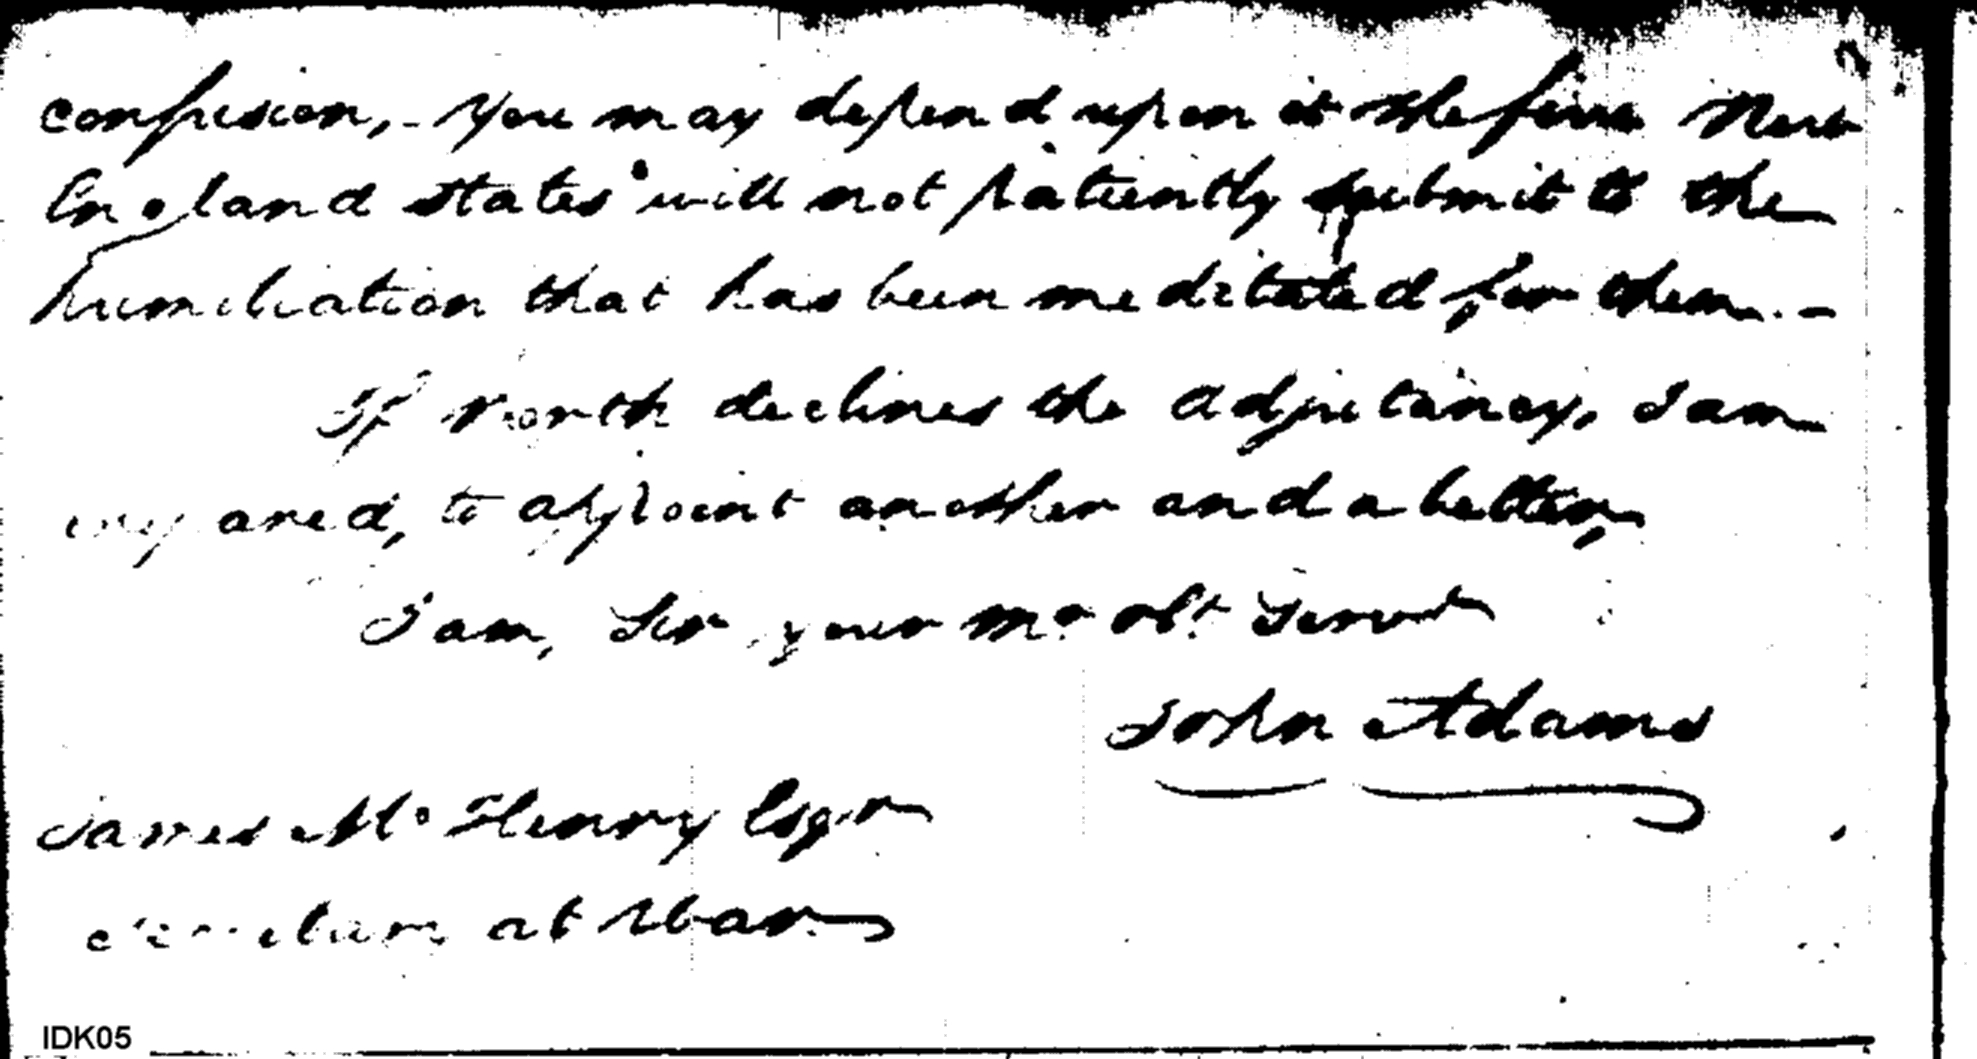 confusion, - You may depend upon it the five New
England states will not patiently submit to the
humiliation that has been meditated for them. -
If North declines the Adjutancy, I am
prepared, to appoint another and a better,
I am, Sir your Mo obt Servt
John Adams
James McHenry Esqr
Secretary at War
IDK05